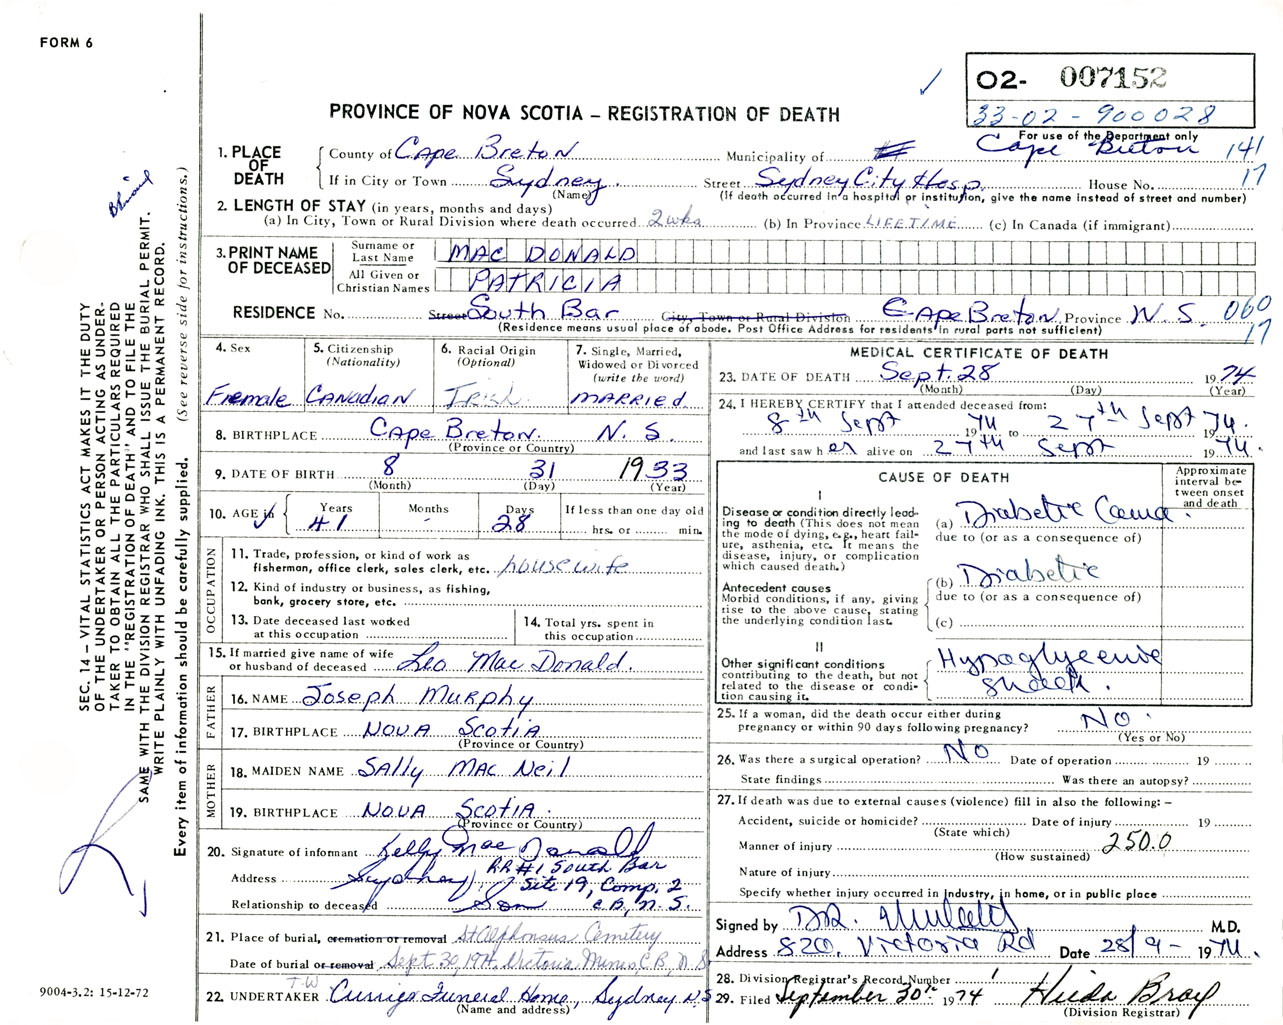 FORM 6
O2- 007152
33-02-900028
PROVINCE OF NOVA SCOTIA – REGISTRATION OF DEATH
For use of the Department only
1. PLACE OF DEATH
County of Cape Breton Municipality of Cape Breton 141
If in City or Town Sydney Street Sydney City Hosp. House No. 17
(Name) (If death occurred in a hospital or institution, give the name instead of street and number)
2. LENGTH OF STAY (in years, months and days)
(a) In City, Town or Rural Division where death occurred 2 wks (b) In Province LIFETIME (c) In Canada (if immigrant)
3. PRINT NAME OF DECEASED
Surname or Last Name MAC DONALD
All Given or Christian Names PATRICIA
RESIDENCE No. Street South Bar City, Town or Rural Division Cape Breton Province N.S. 060
(Residence means usual place of abode. Post Office Address for residents in rural parts not sufficient) 17
4. Sex Female
5. Citizenship (Nationality) CANADIAN
6. Racial Origin (Optional) Irish
7. Single, Married, Widowed or Divorced (write the word) MARRIED
8. BIRTHPLACE Cape Breton. N.S.
(Province or Country)
9. DATE OF BIRTH 8 31 1933
(Month) (Day) (Year)
10. AGE in Years 41 Months - Days 28 If less than one day old hrs. or min.
OCCUPATION
11. Trade, profession, or kind of work as fisherman, office clerk, sales clerk, etc. housewife
12. Kind of industry or business, as fishing, bank, grocery store, etc.
13. Date deceased last worked at this occupation
14. Total yrs. spent in this occupation
15. If married give name of wife or husband of deceased Leo Mac Donald.
FATHER
16. NAME Joseph Murphy
17. BIRTHPLACE NOVA SCOTIA
(Province or Country)
MOTHER
18. MAIDEN NAME Sally Mac Neil
19. BIRTHPLACE NOVA SCOTIA.
(Province or Country)
20. Signature of informant Kelly Mac Donald
Address Sydney, RR#1 South Bar
Site 19, Comp. 2
Relationship to deceased Son C.B., N.S.
21. Place of burial, cremation or removal St Alphonsus Cemetery
Date of burial or removal Sept 30, 1974. Victoria Mines, C.B., N.S
22. UNDERTAKER T.W Curries Funeral Home, Sydney N.S
(Name and address)
MEDICAL CERTIFICATE OF DEATH
23. DATE OF DEATH Sept. 28 1974
(Month) (Day) (Year)
24. I HEREBY CERTIFY that I attended deceased from:
8th Sept 1974 to 27th Sept 1974.
and last saw h er alive on 27th Sept 1974.
CAUSE OF DEATH
Approximate interval between onset and death
I
Disease or condition directly leading to death (This does not mean the mode of dying, e.g., heart failure, asthenia, etc. It means the disease, injury, or complication which caused death.)
(a) Diabetic Coma.
due to (or as a consequence of)
Antecedent causes
Morbid conditions, if any, giving rise to the above cause, stating the underlying condition last.
(b) Diabetic
due to (or as a consequence of)
(c)
II
Other significant conditions contributing to the death, but not related to the disease or condition causing it.
Hypoglycemic
Shock.
25. If a woman, did the death occur either during pregnancy or within 90 days following pregnancy? NO.
(Yes or No)
26. Was there a surgical operation? NO Date of operation 19
State findings Was there an autopsy?
27. If death was due to external causes (violence) fill in also the following: –
Accident, suicide or homicide? Date of injury 19
(State which)
Manner of injury 250.0
(How sustained)
Nature of injury
Specify whether injury occurred in Industry, in home, or in public place
Signed by DR. M.D.
Address 820, Victoria Rd Date 28/9 - 1974.
28. Division Registrar's Record Number 1
29. Filed September 30th 1974 Hilda Bray
(Division Registrar)
SEC. 14 – VITAL STATISTICS ACT MAKES IT THE DUTY
OF THE UNDERTAKER OR PERSON ACTING AS UNDER-
TAKER TO OBTAIN ALL THE PARTICULARS REQUIRED
IN THE "REGISTRATION OF DEATH" AND TO FILE THE
SAME WITH THE DIVISION REGISTRAR WHO SHALL ISSUE THE BURIAL PERMIT.
WRITE PLAINLY WITH UNFADING INK. THIS IS A PERMANENT RECORD.
Every item of information should be carefully supplied. (See reverse side for instructions.)
9004-3.2: 15-12-72